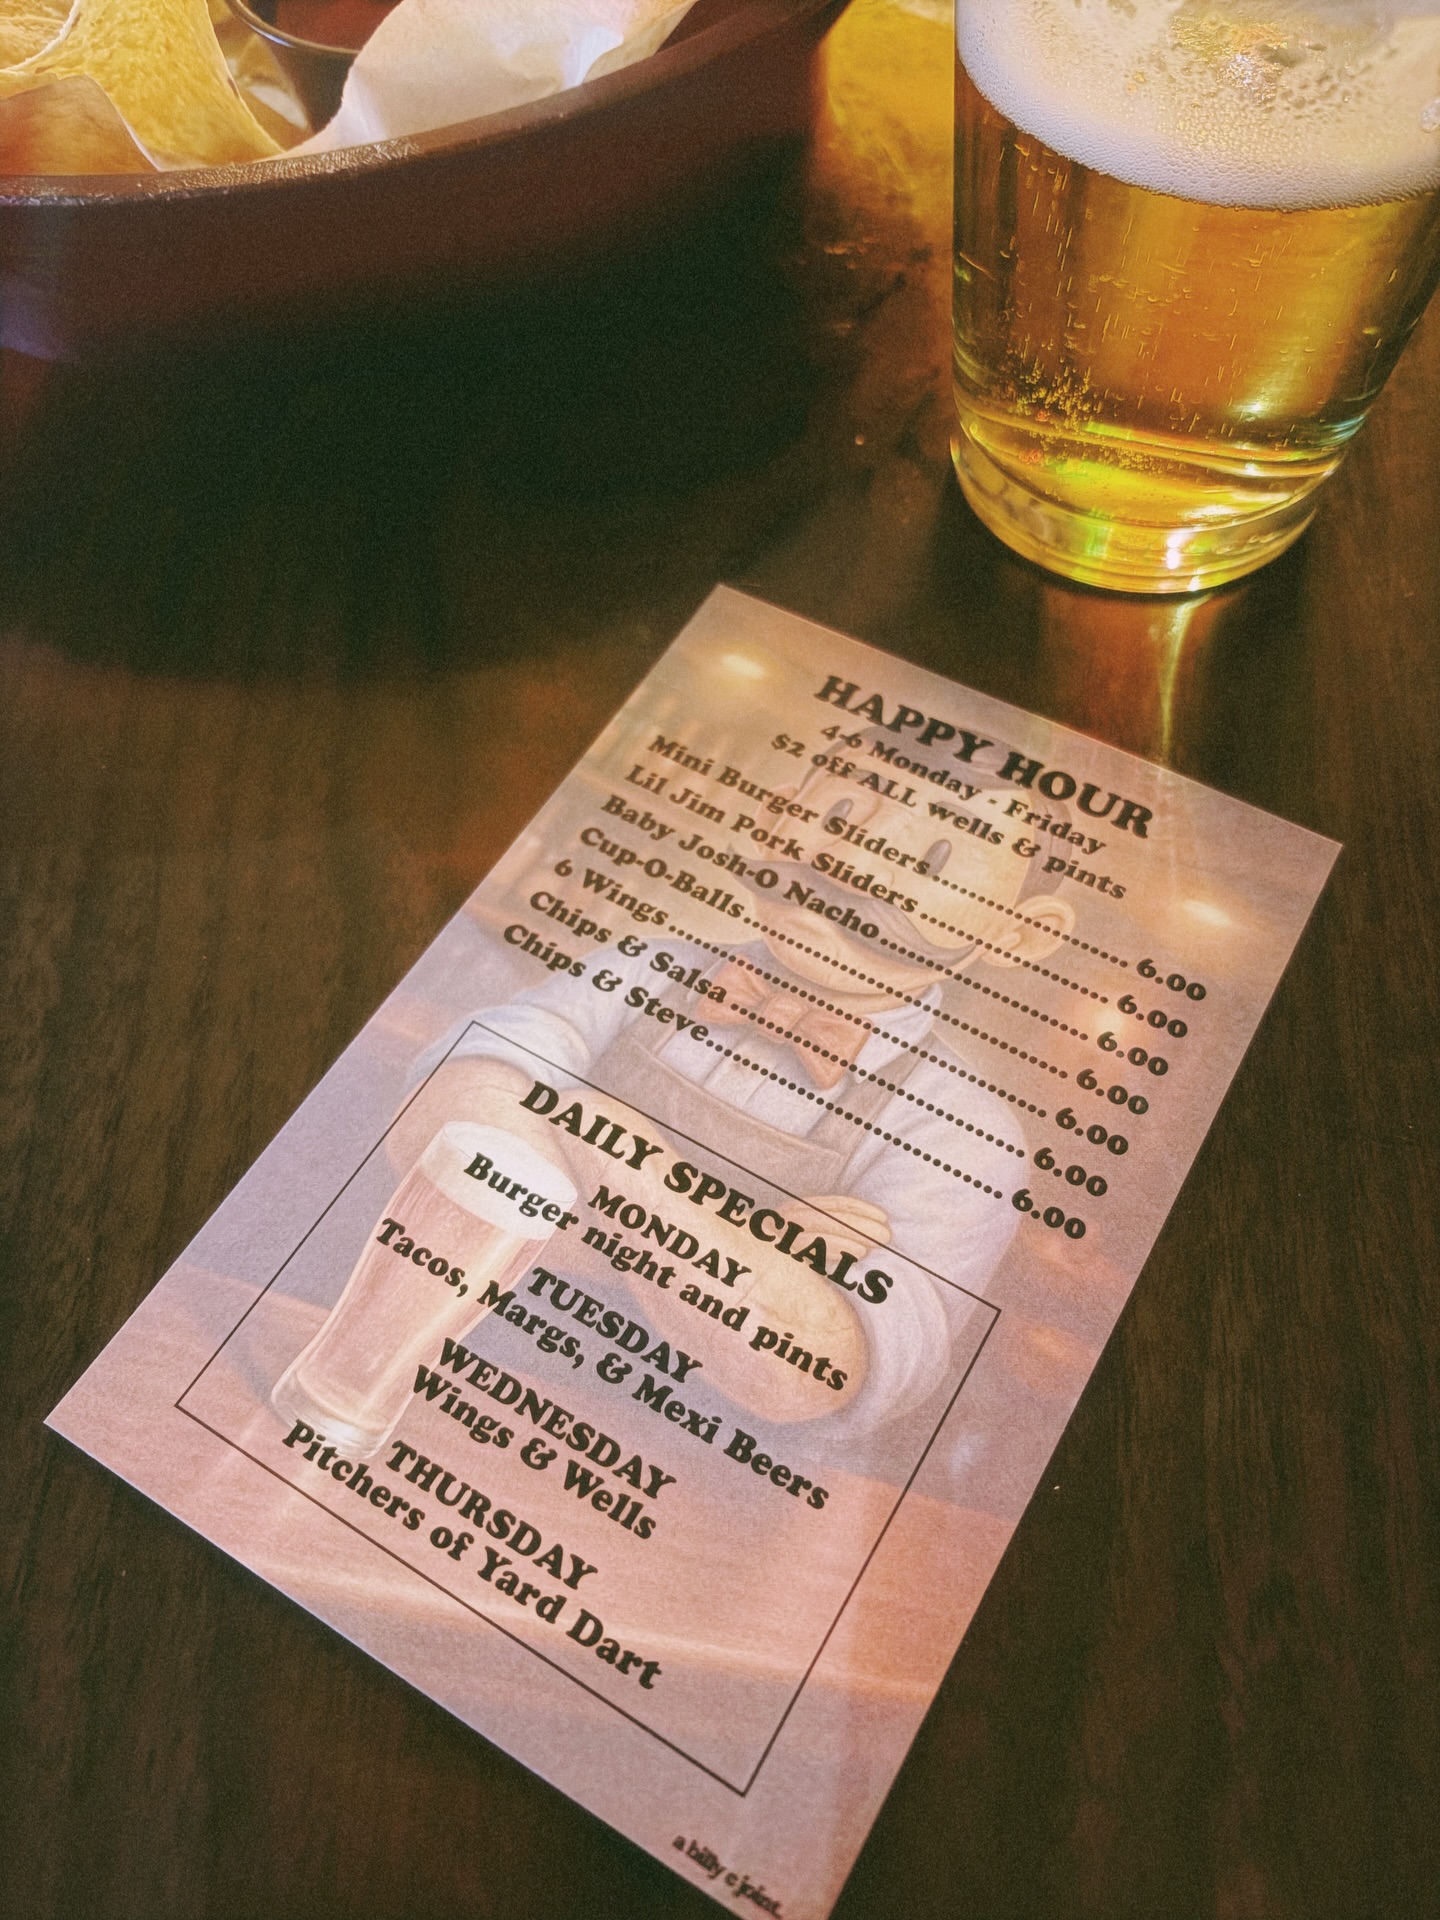 HAPPY HOUR
4-6 Monday - Friday
$2 off ALL wells & pints
Mini Burger Sliders.................... 6.00
Lil Jim Pork Sliders.................... 6.00
Baby Josh-O Nacho.................... 6.00
Cup-O-Balls.................... 6.00
6 Wings.................... 6.00
Chips & Salsa.................... 6.00
Chips & Steve.................... 6.00
DAILY SPECIALS
MONDAY
Burger night and pints
TUESDAY
Tacos, Margs, & Mexi Beers
WEDNESDAY
Wings & Wells
THURSDAY
Pitchers of Yard Dart
a billy c joint.